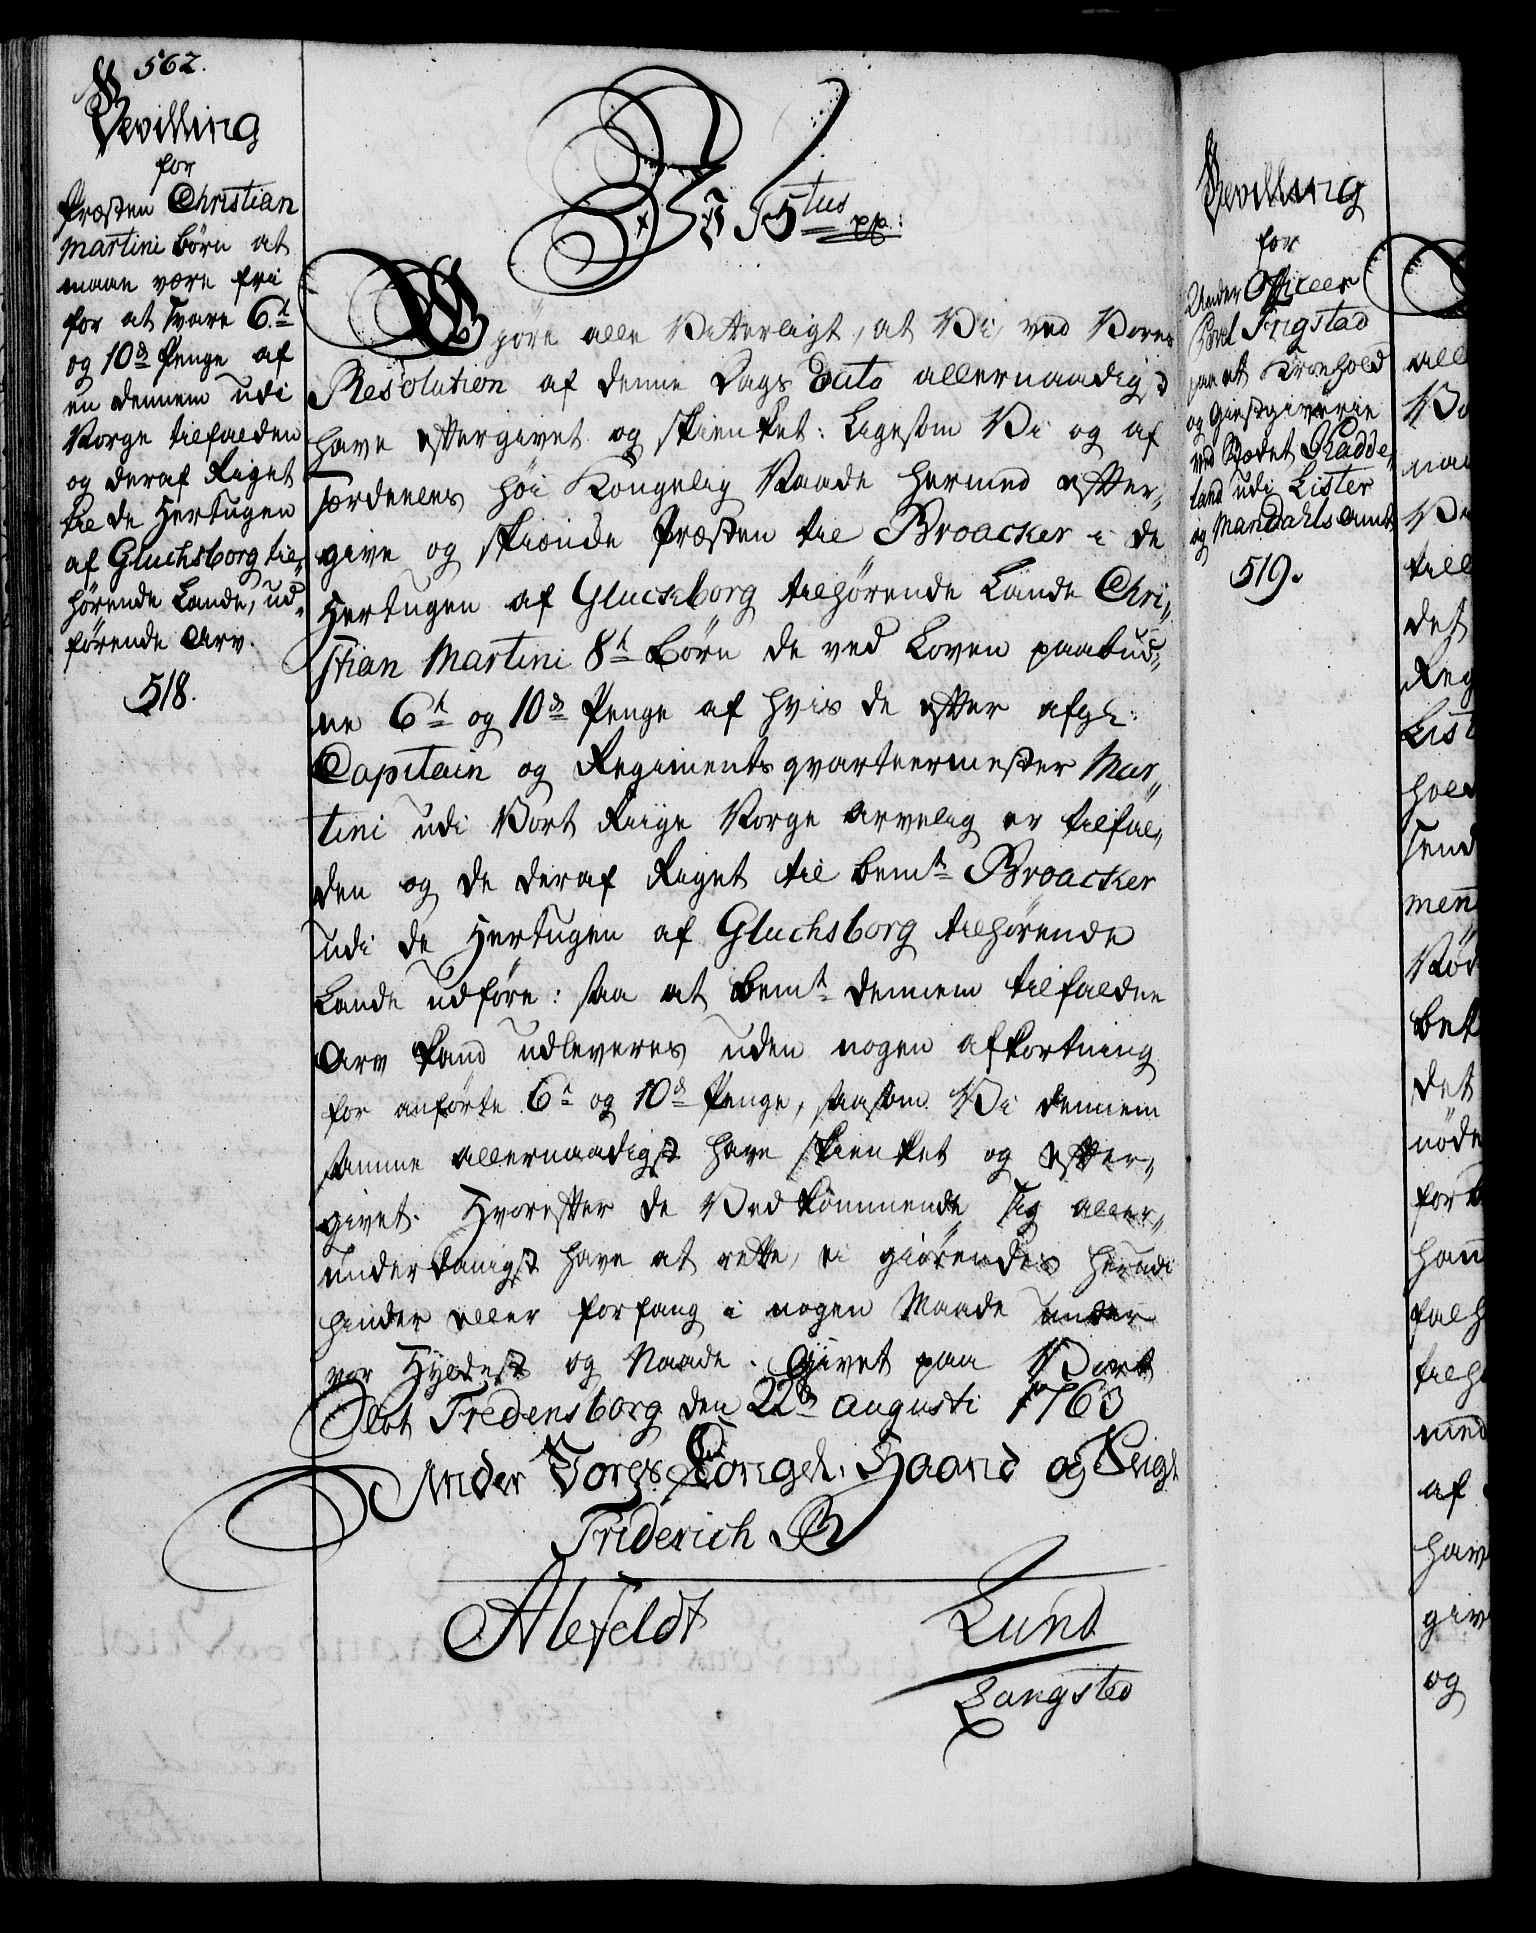 562.
Bevilling
for
Præsten Christian
Martini Børn at
maae være fri
for at svare 6.te
og 10de Penge af
en dennem udi
Norge tilfalden
og deraf Riget
til de Hertugen
af Gluchsborg til,,
hørende Lande, ud,,
førende Arv.
518.
Fr: 5tus pp:
Vi giøre alle Vitterligt, at Vi, ved Vores
Resolution af denne Dags Dato allernaadigst
have eftergivet og skienket: Ligesom Vi og af
særdeeles høi Kongelig Naade hermed efter,,
give og skiænke Præsten til Broacker i de
Hertugen af Glucksborg tilhørende Lande Chri,,
stian Martini 8te Børn de ved Loven paabud,,
ne 6te og 10de Penge af hvis de efter afgl:
Capitain og Regimentsqvarteermester Mar,,
tini udi Vort Riige Norge arvelig er tilfal,,
den og de deraf Riget til bemte Broacker
udi de Hertugen af Gluchsborg tilhørende
Lande udføre: saa at bemte dennem tilfaldne
Arv kand udleveres uden nogen afkortning
for anførte 6te og 10de Penge, saasom Vi dennem
samme allernaadigst have skienket og efter,,
givet. Hvorefter de Vedkommende sig aller,,
underdanigst have at rette, ei giørendes herudi
hinder eller forfang i nogen Maade under
vor Hyldest og Naade. Givet paa Vort
Slot Fredensborg den 22de Augusti 1763
Under Vores Kongel: Haand og Seigl
Friderich R
Alefeldt
Lund
Langsted
Bevilling
for
Under Officeer
Frigstad
paa et Kroehold
og Giestgiverie
ved Stædet
land udi Lister
og Mandahls Amt,
519.
all
det
Reg
List
hold
send
men
bet
det
nøde
for
han
falh
tilh
med
af
hav
giv
og